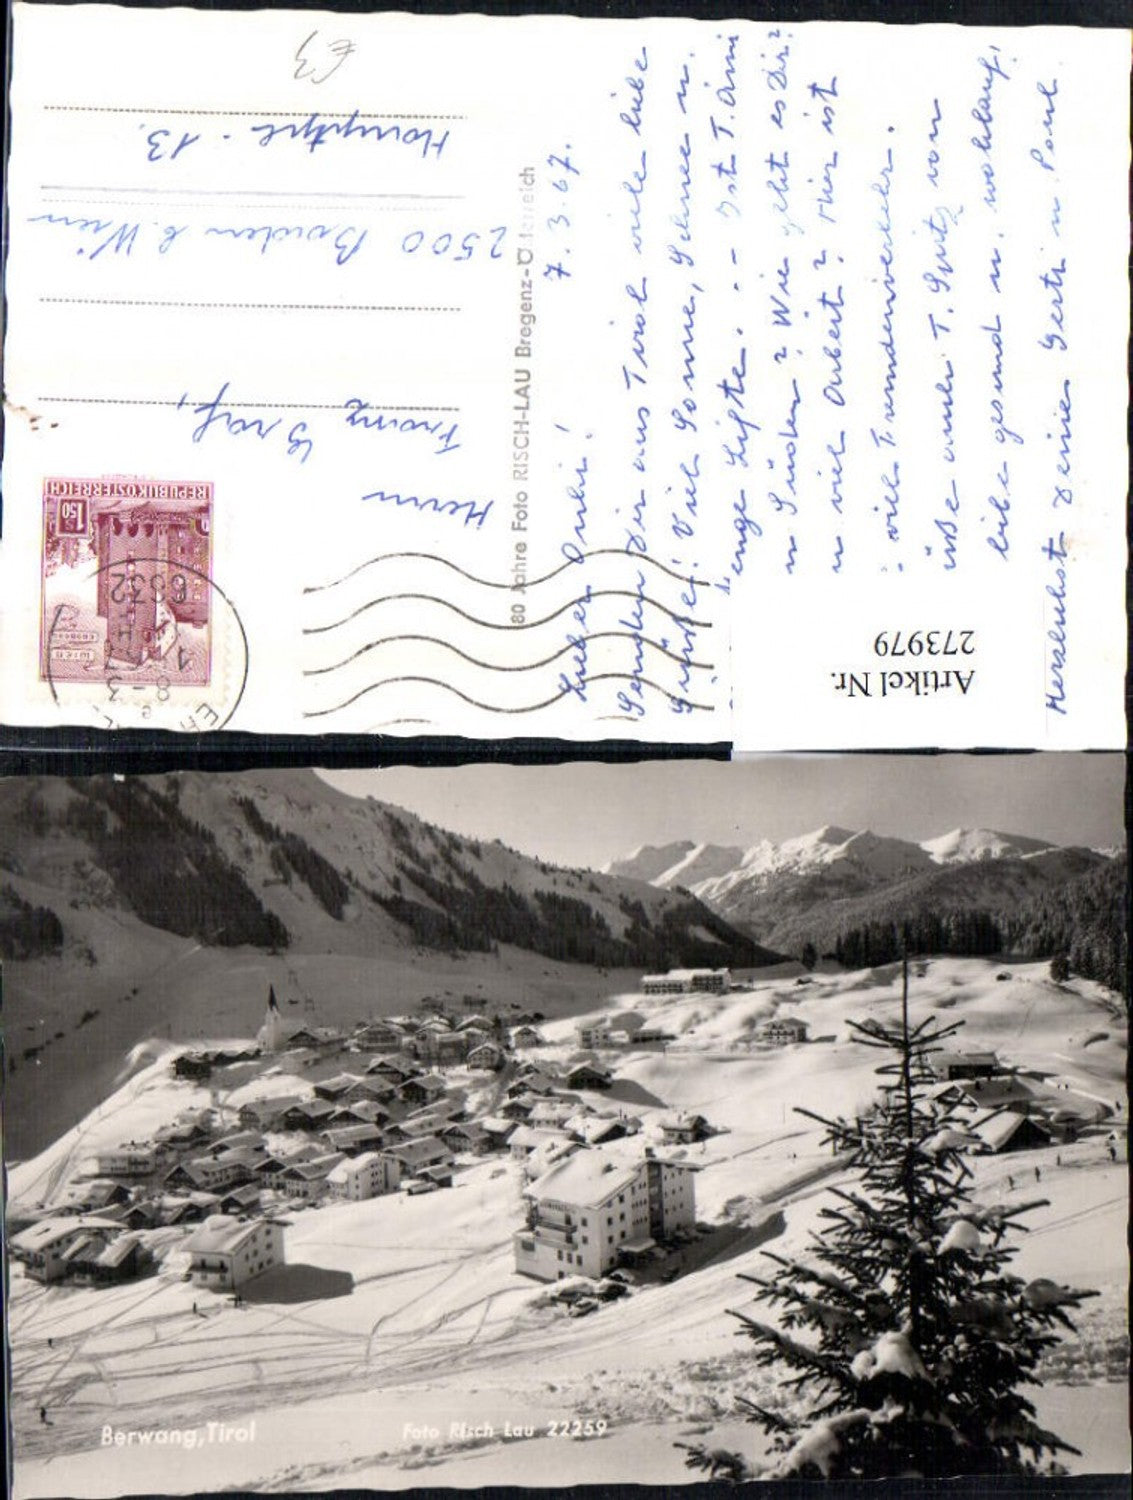 Lieber Onki!
7.3.67.
Senden Dir aus Tirol viele liebe
Grüße! Viel Sonne, Schnee u.
enge Lifte. . - Ist T. Ami
Wie geht es Dir?
u viel Arbeit? Hier ist
viel Fremdenverkehr.
üße auch T. Spitz von
bibe gesund u. wohlauf!
Herzlichst Deine Gerti u. Poml.
80 Jahre Foto RISCH-LAU Bregenz-Österreich
Herrn
Franz Graf,
2500 Baden b. Wien
13.
REPUBLIK ÖSTERREICH
1.50
WIEN
ERDBERG
6632
8-3
Artikel Nr.
273979
Berwang, Tirol
Foto Risch Lau 22259